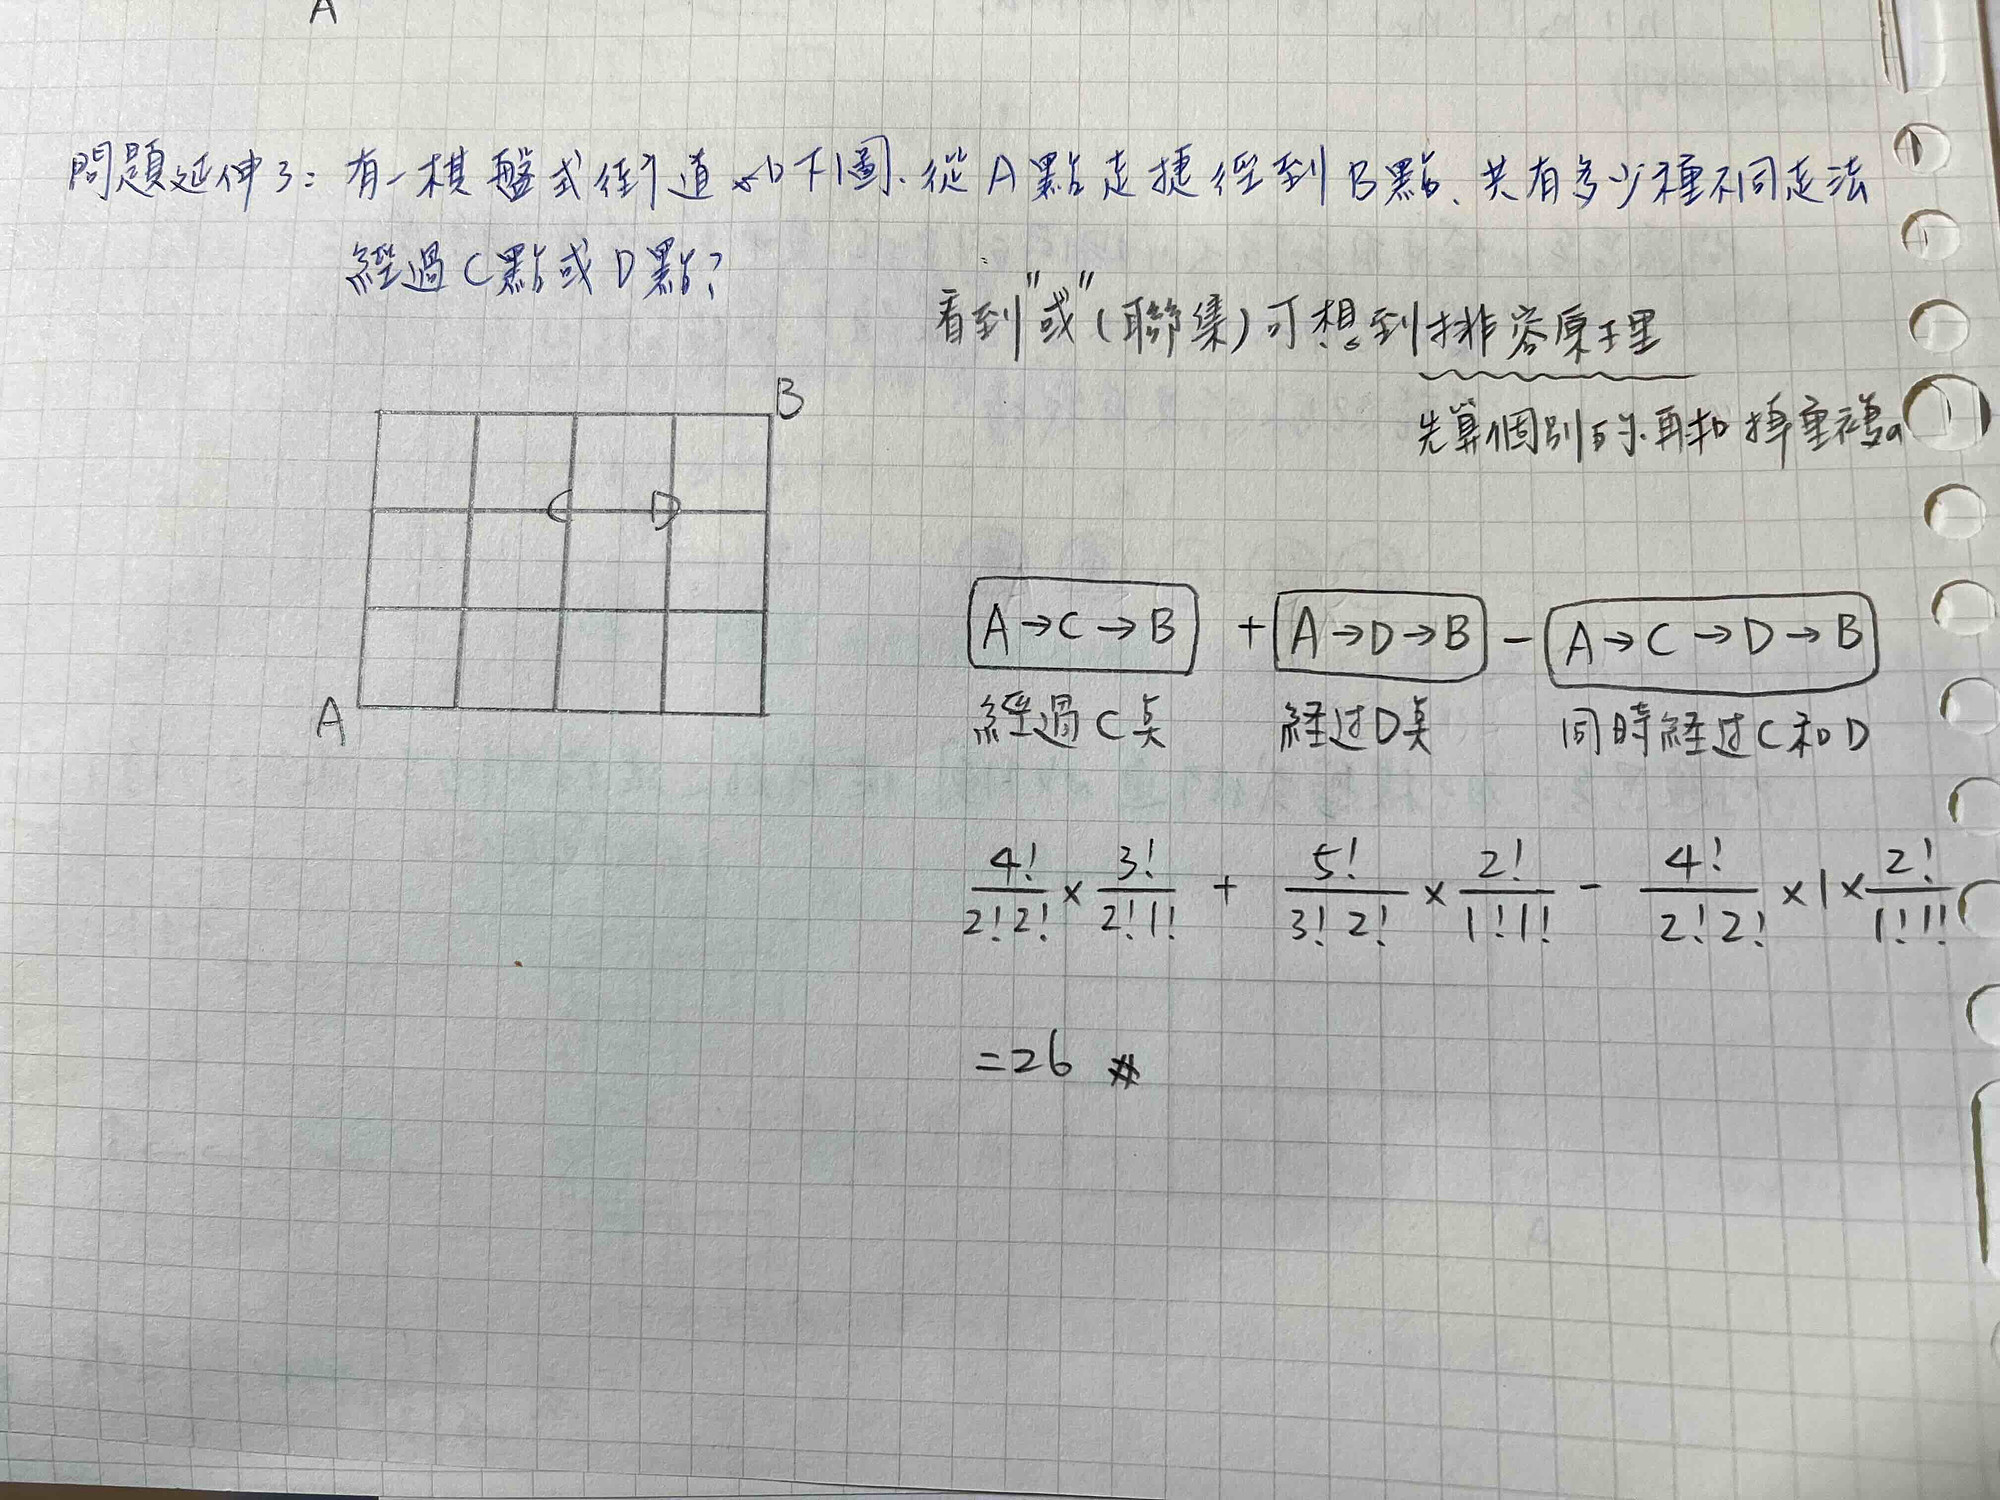 A
問題延伸3：有一棋盤式街道如下圖，從A點走捷徑到B點，共有多少種不同走法
經過C點或D點？
看到"或"(聯集)可想到排容原理
先算個別的，再扣掉重複的
B
C D
A
A→C→B + A→D→B − A→C→D→B
經過C点 経过D点 同時経过C和D
4!/2!2! × 3!/2!1! + 5!/3!2! × 2!/1!1! − 4!/2!2! × 1 × 2!/1!1!
=26 #